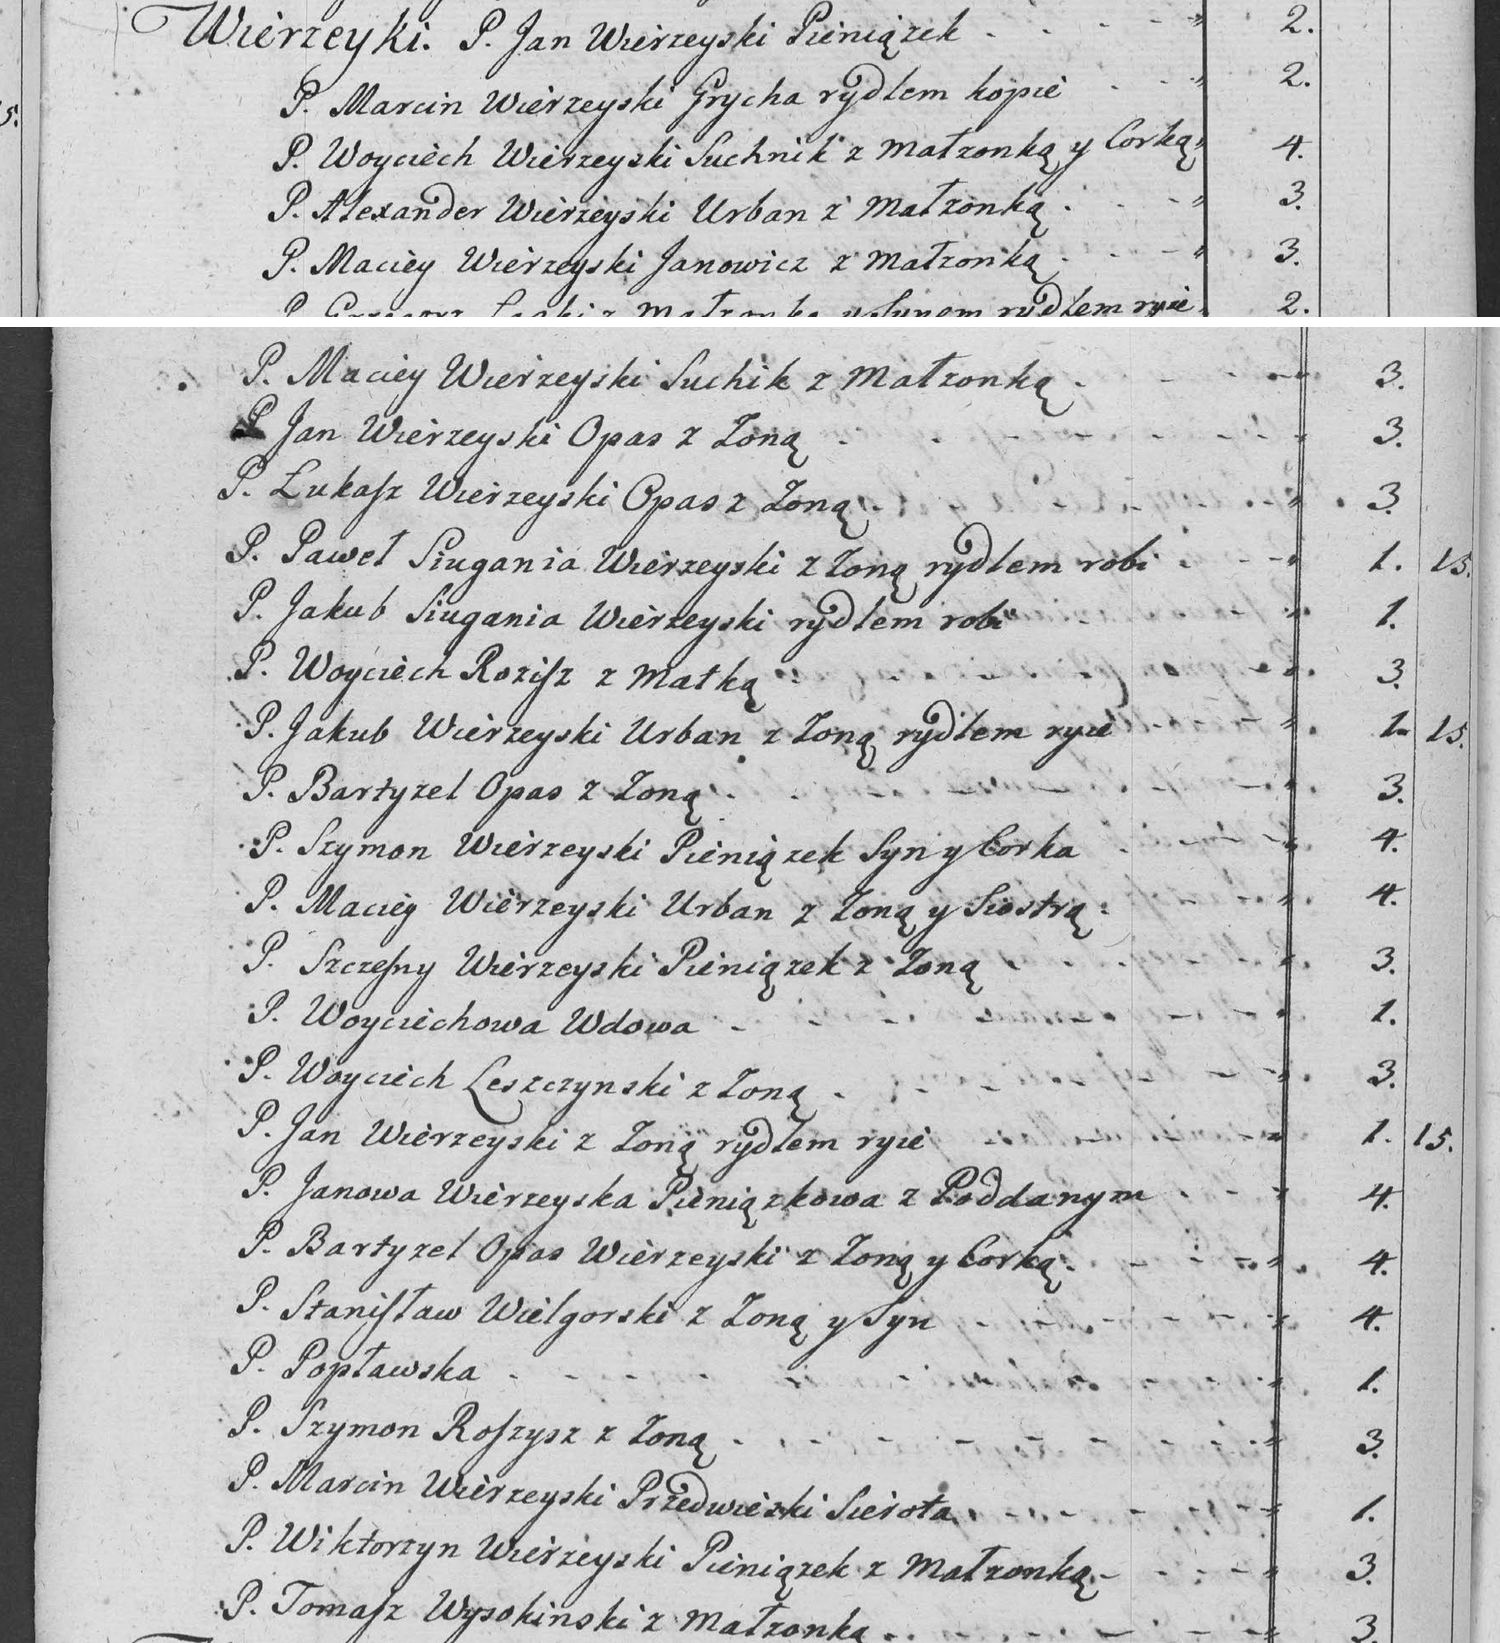 Wierzeyki. P. Jan Wierzeyski Pieniązek . . . . " 2.
P. Marcin Wierzeyski Grycha rydlem kopie . . " 2.
5.
P. Woyciech Wierzeyski Suchnik z Małzonką y Corką " 4.
P. Alexander Wierzeyski Urban z Małzonką . . . " 3.
P. Maciey Wierzeyski Janowicz z Małzonką . . . " 3.
P. Grzegorz Łaski z Małzonką y Synem rydlem ryie " 2.
P. Maciey Wierzeyski Suchik z Małzonką . 3.
P Jan Wierzeyski Opas z Zoną . 3.
P. Łukasz Wierzeyski Opas z Zoną " 3.
P. Paweł Siugania Wierzeyski z Zoną rydlem robi . " 1. 15.
P. Jakub Siugania Wierzeyski rydlem robi " 1.
P. Woyciech Rozisz z Matką . 3.
P. Jakub Wierzeyski Urban z Zoną rydlem ryie " 1. 15.
P. Bartyzel Opas z Zoną . " 3.
P. Szymon Wierzeyski Pieniązek Syn y Corka " 4.
P. Maciey Wierzeyski Urban z Zoną y Siostrą . " 4.
P. Szczesny Wierzeyski Pieniązek z Zoną " 3.
P. Woyciechowa Wdowa - " 1.
P. Woyciech Leszczynski z Zoną . " 3.
P. Jan Wierzeyski z Zoną rydlem ryie " 1. 15.
P. Janowa Wierzeyska Pieniązkowa z Poddanym . " 4.
P. Bartyzel Opas Wierzeyski z Zoną y Corką . " 4.
P. Stanisław Wielgorski z Zoną y Syn " 4.
P. Popławska . " 1.
P. Szymon Roszysz z Zoną . " 3.
P. Marcin Wierzeyski Przedwieski Sierota . " 1.
P. Wiktorzyn Wierzeyski Pieniązek z Małzonką . " 3.
P. Tomasz Wysokinski z Małzonką . " 3.